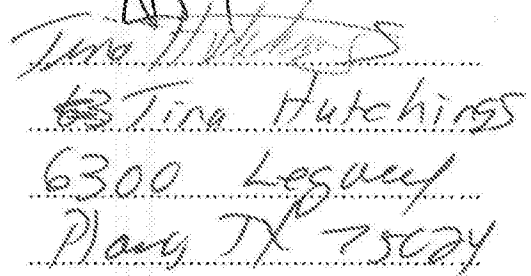 Tina Hutchings
Tina Hutchings
6300 Legacy
Plano TX 75024